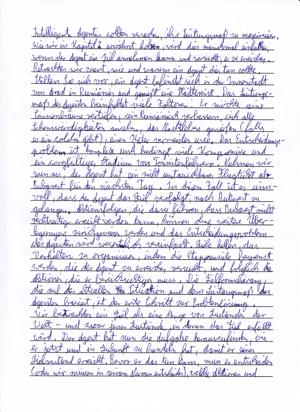 Intelligente Agenten sollten versuchen, ihr Leistungsmaß zu maximieren.
Wie wir in Kapitel 2 erwähnt haben, wird dies manchmal einfacher,
wenn der Agent ein Ziel annehmen kann und versucht, es zu erreichen.
Betrachten wir zuerst, wie und warum ein Agent dies tun sollte.
Stellen Sie sich vor, ein Agent befindet sich in der Innenstadt
von Arad in Rumänien und genießt eine Städtereise. Das Leistungs-
maß des Agenten beinhaltet viele Faktoren. Er möchte seine
Sonnenbräune vertiefen, sein Rumänisch verbessern, sich alle
Sehenswürdigkeiten ansehen, das Nachtleben genießen (falls
es ein solches gibt), einen Kater vermeiden usw. Das Entscheidungs-
problem ist komplex und bedingt viele Kompromisse und
ein sorgfältiges Studium von Touristenführern. Nehmen wir
nun an, der Agent hat ein nicht umtauschbares Flugticket ab
Bukarest für den nächsten Tag. In diesem Fall ist es sinn-
voll, dass der Agent das Ziel verfolgt, nach Bukarest zu
gelangen. Aktionsfolgen, die dazu führen, dass Bukarest nicht
rechtzeitig erreicht werden kann, können ohne weitere Über-
legungen zurückgewiesen werden und das Entscheidungsproblem
des Agenten wird wesentlich vereinfacht. Ziele helfen, das
Verhalten zu organisieren, indem die Etappenziele begrenzt
werden, die der Agent zu erreichen versucht, und folglich die
Aktionen, die er berücksichtigen muss. Die Zielformulierung,
die auf der aktuellen Situation und dem Leistungsmaß des
Agenten basiert, ist der erste Schritt zur Problemlösung.
Wir betrachten ein Ziel als eine Menge von Zuständen der
Welt - und zwar jener Zustände, in denen das Ziel erfüllt
wird. Der Agent hat nun die Aufgabe herauszufinden, wie
er jetzt und in Zukunft zu handeln hat, damit er einen
Zielzustand erreicht. Bevor er das tun kann, muss er entscheiden
(oder wir müssen in seinem Namen entscheiden), welche Aktionen und